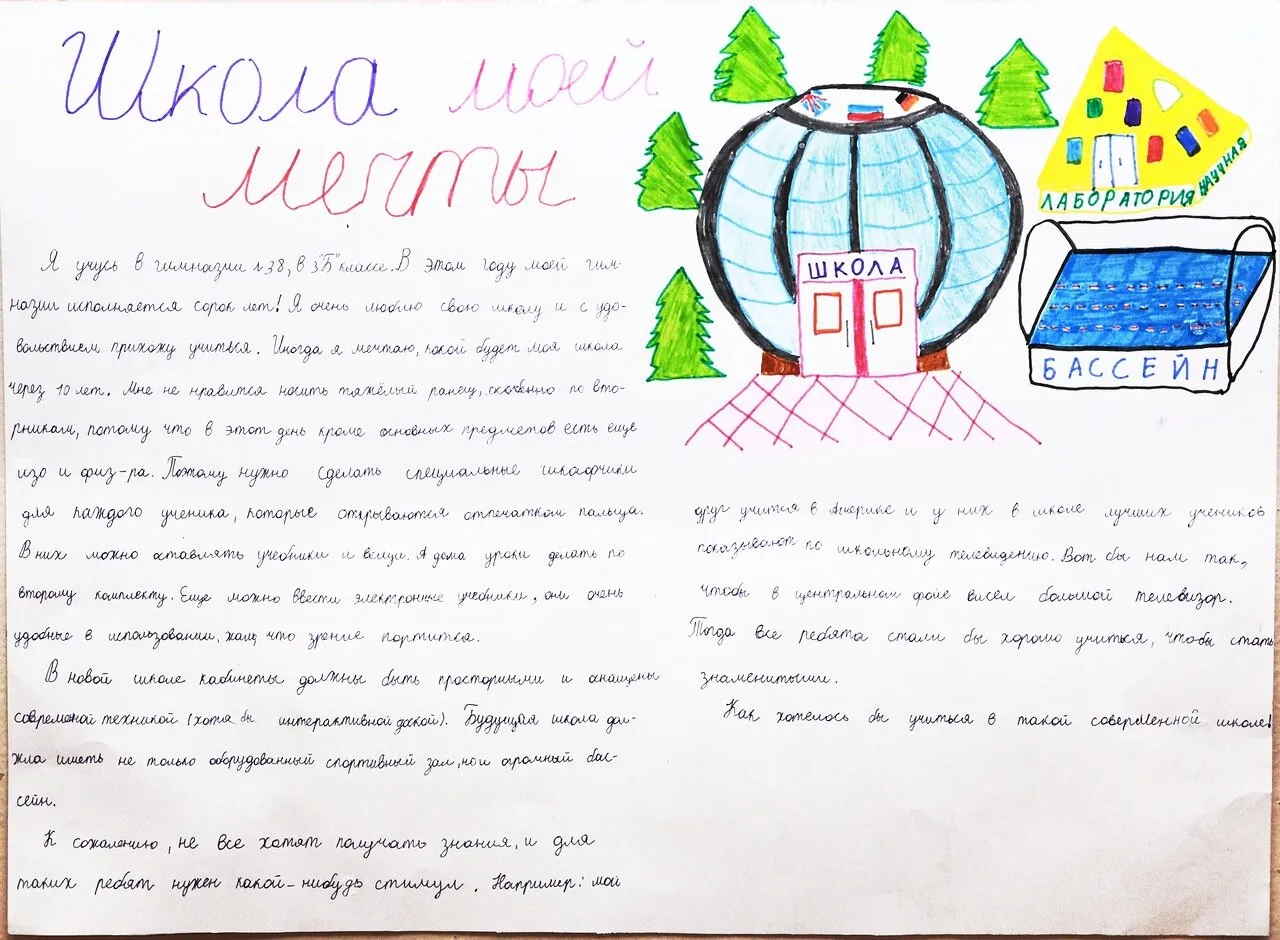 Школа моей
мечты
Я учусь в гимназии №38, в 3"Б" классе. В этом году моей гим-
назии исполняется сорок лет! Я очень люблю свою школу и с удо-
вольствием прихожу учиться. Иногда я мечтаю, какой будет моя школа
через 10 лет. Мне не нравится носить тяжёлый ранец, особенно по вто-
рникам, потому что в этот день кроме основных предметов есть еще
изо и физ-ра. Поэтому нужно сделать специальные шкафчики
для каждого ученика, которые открываются отпечатком пальца.
В них можно оставлять учебники и вещи. А дома уроки делать по
второму комплекту. Еще можно ввести электронные учебники, они очень
удобные в использовании, жаль, что зрение портится.
В новой школе кабинеты должны быть просторными и оснащены
современой техникой (хотя бы интерактивной доской). Будущая школа дол-
жна иметь не только оборудованный спортивный зал, но и огромный бас-
сейн.
К сожалению, не все хотят получать знания, и для
таких ребят нужен какой-нибудь стимул. Например: мой
ШКОЛА
ЛАБОРАТОРИЯ НАУЧНАЯ
БАССЕЙН
друг учится в Америке и у них в школе лучших учеников
показывают по школьному телевидению. Вот бы нам так,
чтобы в центральном фойе висел большой телевизор.
Тогда все ребята стали бы хорошо учиться, чтобы стать
знаменитыми.
Как хотелось бы учиться в такой современной школе!